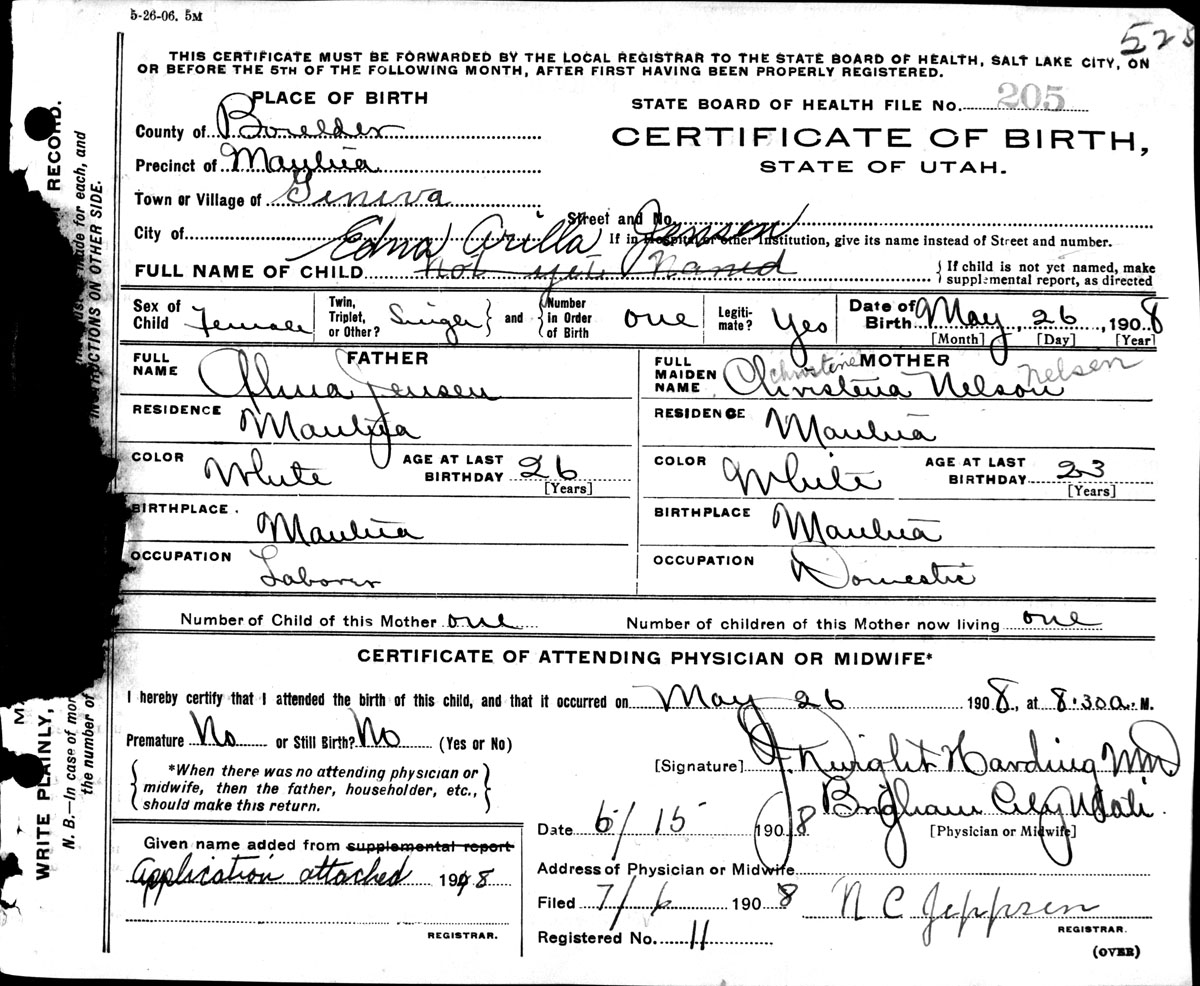 5-26-06. 5M
525
THIS CERTIFICATE MUST BE FORWARDED BY THE LOCAL REGISTRAR TO THE STATE BOARD OF HEALTH, SALT LAKE CITY, ON
OR BEFORE THE 5TH OF THE FOLLOWING MONTH, AFTER FIRST HAVING BEEN PROPERLY REGISTERED.
PLACE OF BIRTH
STATE BOARD OF HEALTH FILE No. 205
County of Boxelder
CERTIFICATE OF BIRTH,
Precinct of Mantua
STATE OF UTAH.
Town or Village of Geneva
Street and No.
City of
If in Hospital or other Institution, give its name instead of Street and number.
Edna Arilla Jensen
FULL NAME OF CHILD not yet Named
{ If child is not yet named, make
supplemental report, as directed
Sex of Child Female
Twin, Triplet, or Other? Single } and { Number in Order of Birth one
Legiti-mate? Yes
Date of Birth May, 26, 1908
[Month] [Day] [Year]
FATHER
FULL NAME Alma Jensen
RESIDENCE Mantua
COLOR White AGE AT LAST BIRTHDAY 26
[Years]
BIRTHPLACE. Mantua
OCCUPATION Laborer
MOTHER
FULL MAIDEN NAME Christena Nelson
Christine Nelsen
RESIDENCE Mantua
COLOR White AGE AT LAST BIRTHDAY 23
[Years]
BIRTHPLACE Mantua
OCCUPATION Domestic
Number of Child of this Mother one Number of children of this Mother now living one
CERTIFICATE OF ATTENDING PHYSICIAN OR MIDWIFE*
I hereby certify that I attended the birth of this child, and that it occurred on May 26 1908, at 8:30 a. M.
Premature No or Still Birth? No (Yes or No)
{ *When there was no attending physician or
midwife, then the father, householder, etc.,
should make this return. }
[Signature] J. Dwight Harding MD
Brigham City Utah.
Date 6/15 1908 [Physician or Midwife]
Address of Physician or Midwife
Filed 7/6 1908 N C Jeppsen
REGISTRAR.
Registered No. 11
(OVER)
Given name added from supplemental report
Application attached 1908
REGISTRAR.
WRITE PLAINLY,
RECORD.
N. B.—In case of
made for each, and
the number of
INSTRUCTIONS ON OTHER SIDE.